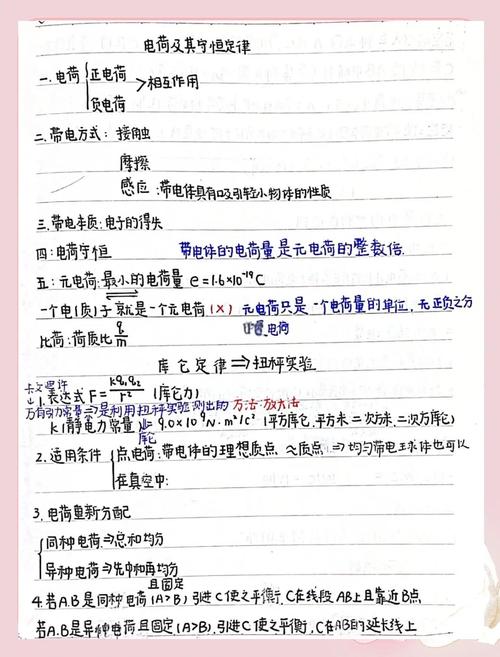 电荷及其守恒定律
一.电荷 { 正电荷 负电荷 > 相互作用
二.带电方式: 接触
摩擦
感应:带电体具有吸引轻小物体的性质
三.带电本质:电子的得失
四:电荷守恒 带电体的电荷量是元电荷的整数倍.
五:元电荷:最小的电荷量 e=1.6×10⁻¹⁹C
一个电(质)子就是一个元电荷(×) 元电荷只是一个电荷量的单位,无正负之分
比荷:荷质比 q/m 电荷
库仑定律⇒扭秤实验
卡文迪许
↓1.表达式 F=kq₁q₂/r² (库仑力)
万有引力常量⇒是利用扭秤实验测出的 方法:放大法
k(静电力常量)=9.0×10⁹N·m²/c² (平方库仑,平方米·二次方米,二次方库仑)
库仑
2.适用条件 { 点电荷:带电体的理想质点 ≈质点 ⇒均匀带电球体也可以
在真空中:
3.电荷重新分配
{ 同种电荷⇒总和均分
异种电荷⇒先中和再均分
且固定
4.若A.B是同种电荷(A>B),引进C使之平衡,C在线段AB上且靠近B点
若A.B是异种电荷且固定(A>B),引进C使之平衡,C在AB的延长线上